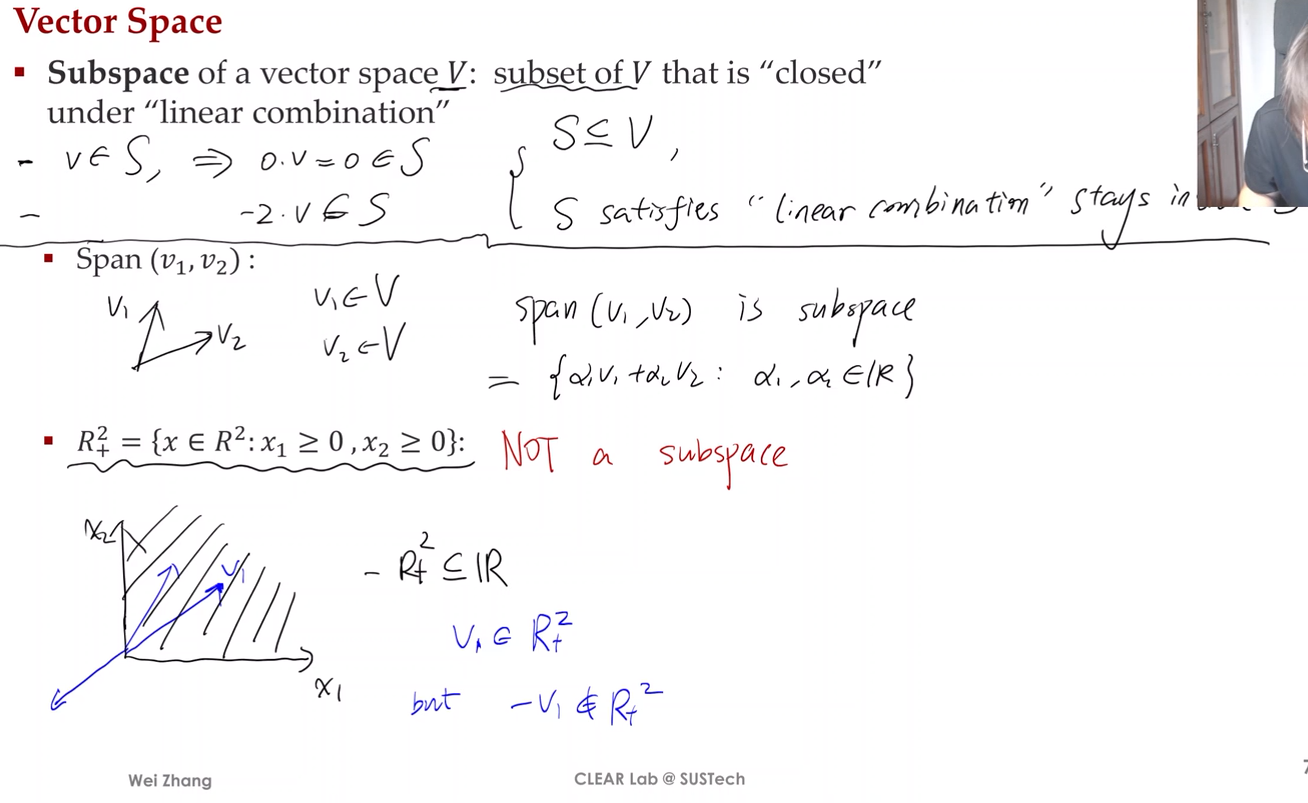 Vector Space
▪ Subspace of a vector space V: subset of V that is "closed"
under "linear combination"
S ⊆ V,
- v ∈ S, ⇒ 0·v = 0 ∈ S
S satisfies "linear combination" stays in
- -2·v ∈ S
▪ Span (v₁, v₂) :
v₁ v₂
v₁ ∈ V
v₂ ∈ V
span (v₁, v₂) is subspace
= {α₁v₁ + α₂v₂ : α₁, α₂ ∈ ℝ}
▪ R²₊ = {x ∈ R²: x₁ ≥ 0 , x₂ ≥ 0}: NOT a subspace
x₂
v₁
x₁
- R²₊ ⊆ ℝ
v₁ ∈ R²₊
but -v₁ ∉ R₊²
Wei Zhang
CLEAR Lab @ SUSTech
7